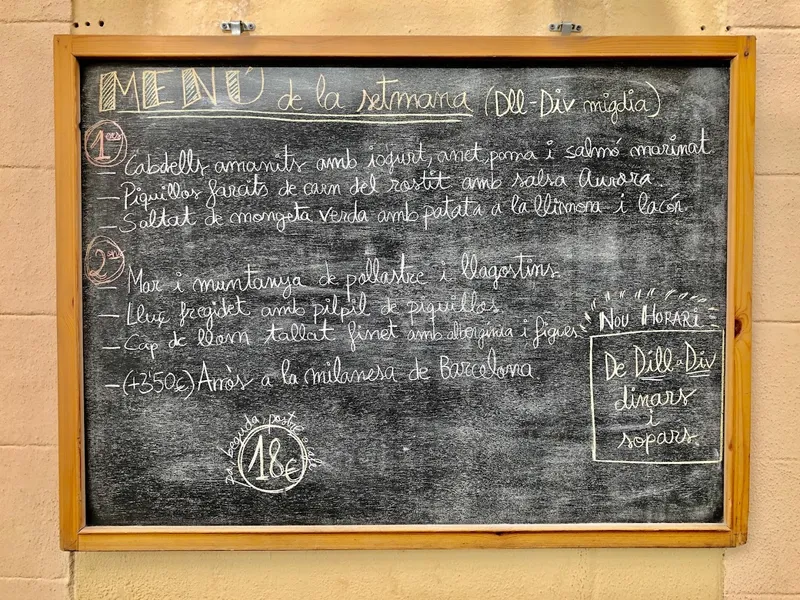 MENÚ de la setmana (Dll-Div migdia)
1ers
- Cabdells amanits amb iogurt, anet, poma i salmó marinat.
- Piquillos farcits de carn del rostit amb salsa Aurora.
- Saltat de mongeta verda amb patata a la llimona i lacón.
2ons
- Mar i muntanya de pollastre i llagostins.
- Lluç fregidet amb pilpil de piquillos.
- Cap de llom tallat finet amb albergínia i figues
- (+3'50€) Arròs a la milanesa de Barcelona.
NOU HORARI
De Dill a Div
dinars
i
sopars.
pa beguda postre o cafè
18€